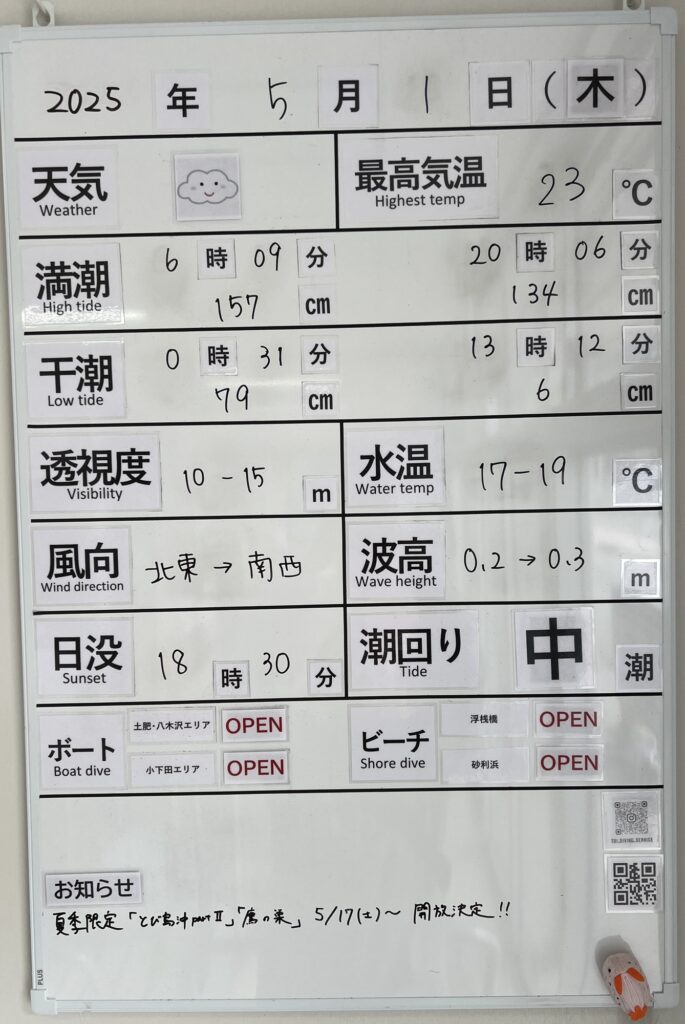 2025 年 5 月 1 日 (木)
天気 最高気温 23 ℃
Weather Highest temp
満潮 6 時 09 分 20 時 06 分
High tide 157 cm 134 cm
干潮 0 時 31 分 13 時 12 分
Low tide 79 cm 6 cm
透視度 10 - 15 m 水温 17-19 ℃
Visibility Water temp
風向 北東 → 南西 波高 0.2 → 0.3 m
Wind direction Wave height
日没 18 時 30 分 潮回り 中 潮
Sunset Tide
ボート 土肥・八木沢エリア OPEN ビーチ 浮桟橋 OPEN
Boat dive 小下田エリア OPEN Shore dive 砂利浜 OPEN
TOI.DIVING.SERVICE
お知らせ
夏季限定「とび島沖partⅡ」「鷹の巣」 5/17(土)～ 開放決定!!
PLUS